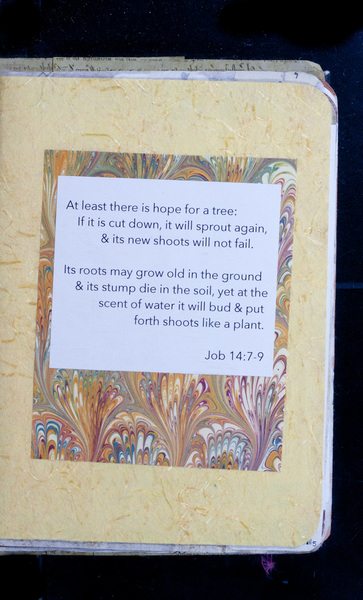 At least there is hope for a tree:
If it is cut down, it will sprout again,
& its new shoots will not fail.
Its roots may grow old in the ground
& its stump die in the soil, yet at the
scent of water it will bud & put
forth shoots like a plant.
Job 14:7-9